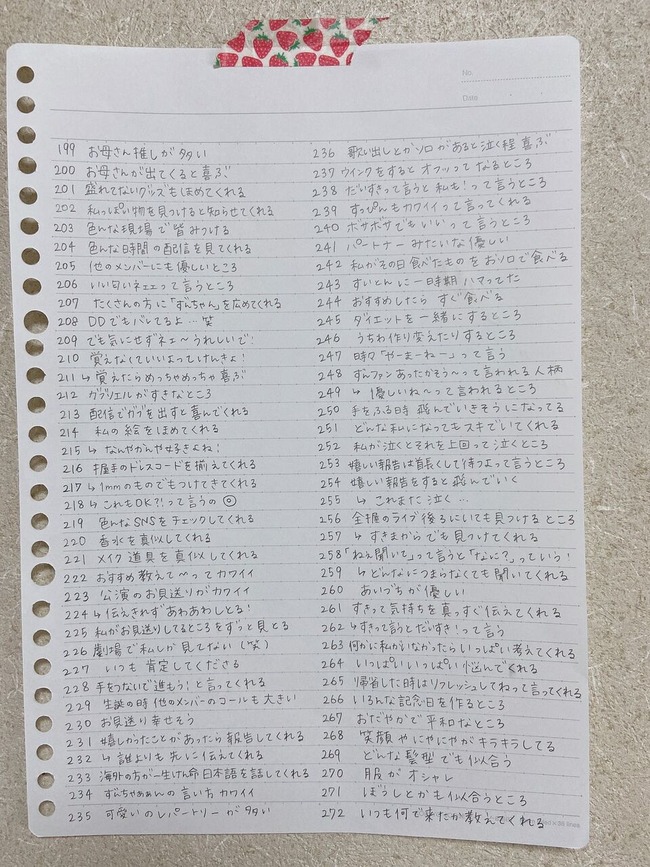 No.
Date
199 お母さん推しが多い
200 お母さんが出てくると喜ぶ
201 盛れてないグッズもほめてくれる
202 私っぽい物を見つけると知らせてくれる
203 色んな現場で皆みつける
204 色んな時間の配信を見てくれる
205 他のメンバーにも優しいところ
206 いい匂いネェェって言うところ
207 たくさんの方に「ずんちゃん」を広めてくれる
208 DDでもバレてるよ…笑
209 でも気にせずネェ〜うれしいで!
210 覚えなくていいよってけんきょ!
211 ↳ 覚えたらめっちゃめっちゃ喜ぶ
212 ググリエルがすきなところ
213 配信でガブを出すと喜んでくれる
214 私の絵をほめてくれる
215 ↳ なんやかんや好きよね!
216 握手のドレスコードを揃えてくれる
217 ↳ 1mmのものでもつけてきてくれる
218 ↳ これもOK?!って言うの ◎
219 色んなSNSをチェックしてくれる
220 香水を真似してくれる
221 メイク道具を真似してくれる
222 おすすめ教えて〜ってカワイイ
223 公演のお見送りがカワイイ
224 ↳ 伝えきれずあわあわしとる!
225 私がお見送りしてるところをずっと見とる
226 劇場で私しか見てない(笑)
227 いつも肯定してくださる
228 手をつないで進もう!と言ってくれる
229 生誕の時他のメンバーのコールも大きい
230 お見送り幸せそう
231 嬉しかったことがあったら報告してくれる
232 ↳ 誰よりも先に伝えてくれる
233 海外の方が一生けん命日本語を話してくれる
234 ずんちゃぁぁんの言い方カワイイ
235 可愛いのレパートリーが多い
236 歌い出しとかソロがあると泣く程喜ぶ
237 ウインクをするとオフッってなるところ
238 だいすきって言うと私も!って言うところ
239 すっぴんもカワイイって言ってくれる
240 ボサボサでもいいって言うところ
241 パートナーみたいな優しい
242 私がその日食べたものをおソロで食べる
243 すいとんに一時期ハマってた
244 おすすめしたらすぐ食べる
245 ダイエットを一緒にするところ
246 うちわ作り変えたりするところ
247 時々「やーまーねー」って言う
248 ずんファンあったかそう〜って言われる人柄
249 ↳ 優しいね〜って言われるところ
250 手をふる時飛んでいきそうになってる
251 どんな私になってもスキでいてくれる
252 私が泣くとそれを上回って泣くところ
253 嬉しい報告は首長くして待つよって言うところ
254 嬉しい報告をすると飛んでいく
255 ↳ これまた泣く…
256 全握のライブ後ろにいても見つけるところ
257 ↳ すきまからでも見つけてくれる
258 「ねぇ聞いて」って言うと「なに?」っていう!
259 ↳ どんなにつまらなくても聞いてくれる
260 あいづちが優しい
261 すきって気持ちを真っすぐ伝えてくれる
262 ↳ すきって言うとだいすき!って言う
263 何かに私がいなかったらいっぱい考えてくれる
264 いっぱいいっぱい悩んでくれる
265 帰省した時はリフレッシュしてねって言ってくれる
266 いろんな記念日を作るところ
267 おだやかで平和なところ
268 笑顔やにやにやがキラキラしてる
269 どんな髪型でも似合う
270 服がオシャレ
271 ぼうしとかも似合うところ
272 いつも何で来たか教えてくれる